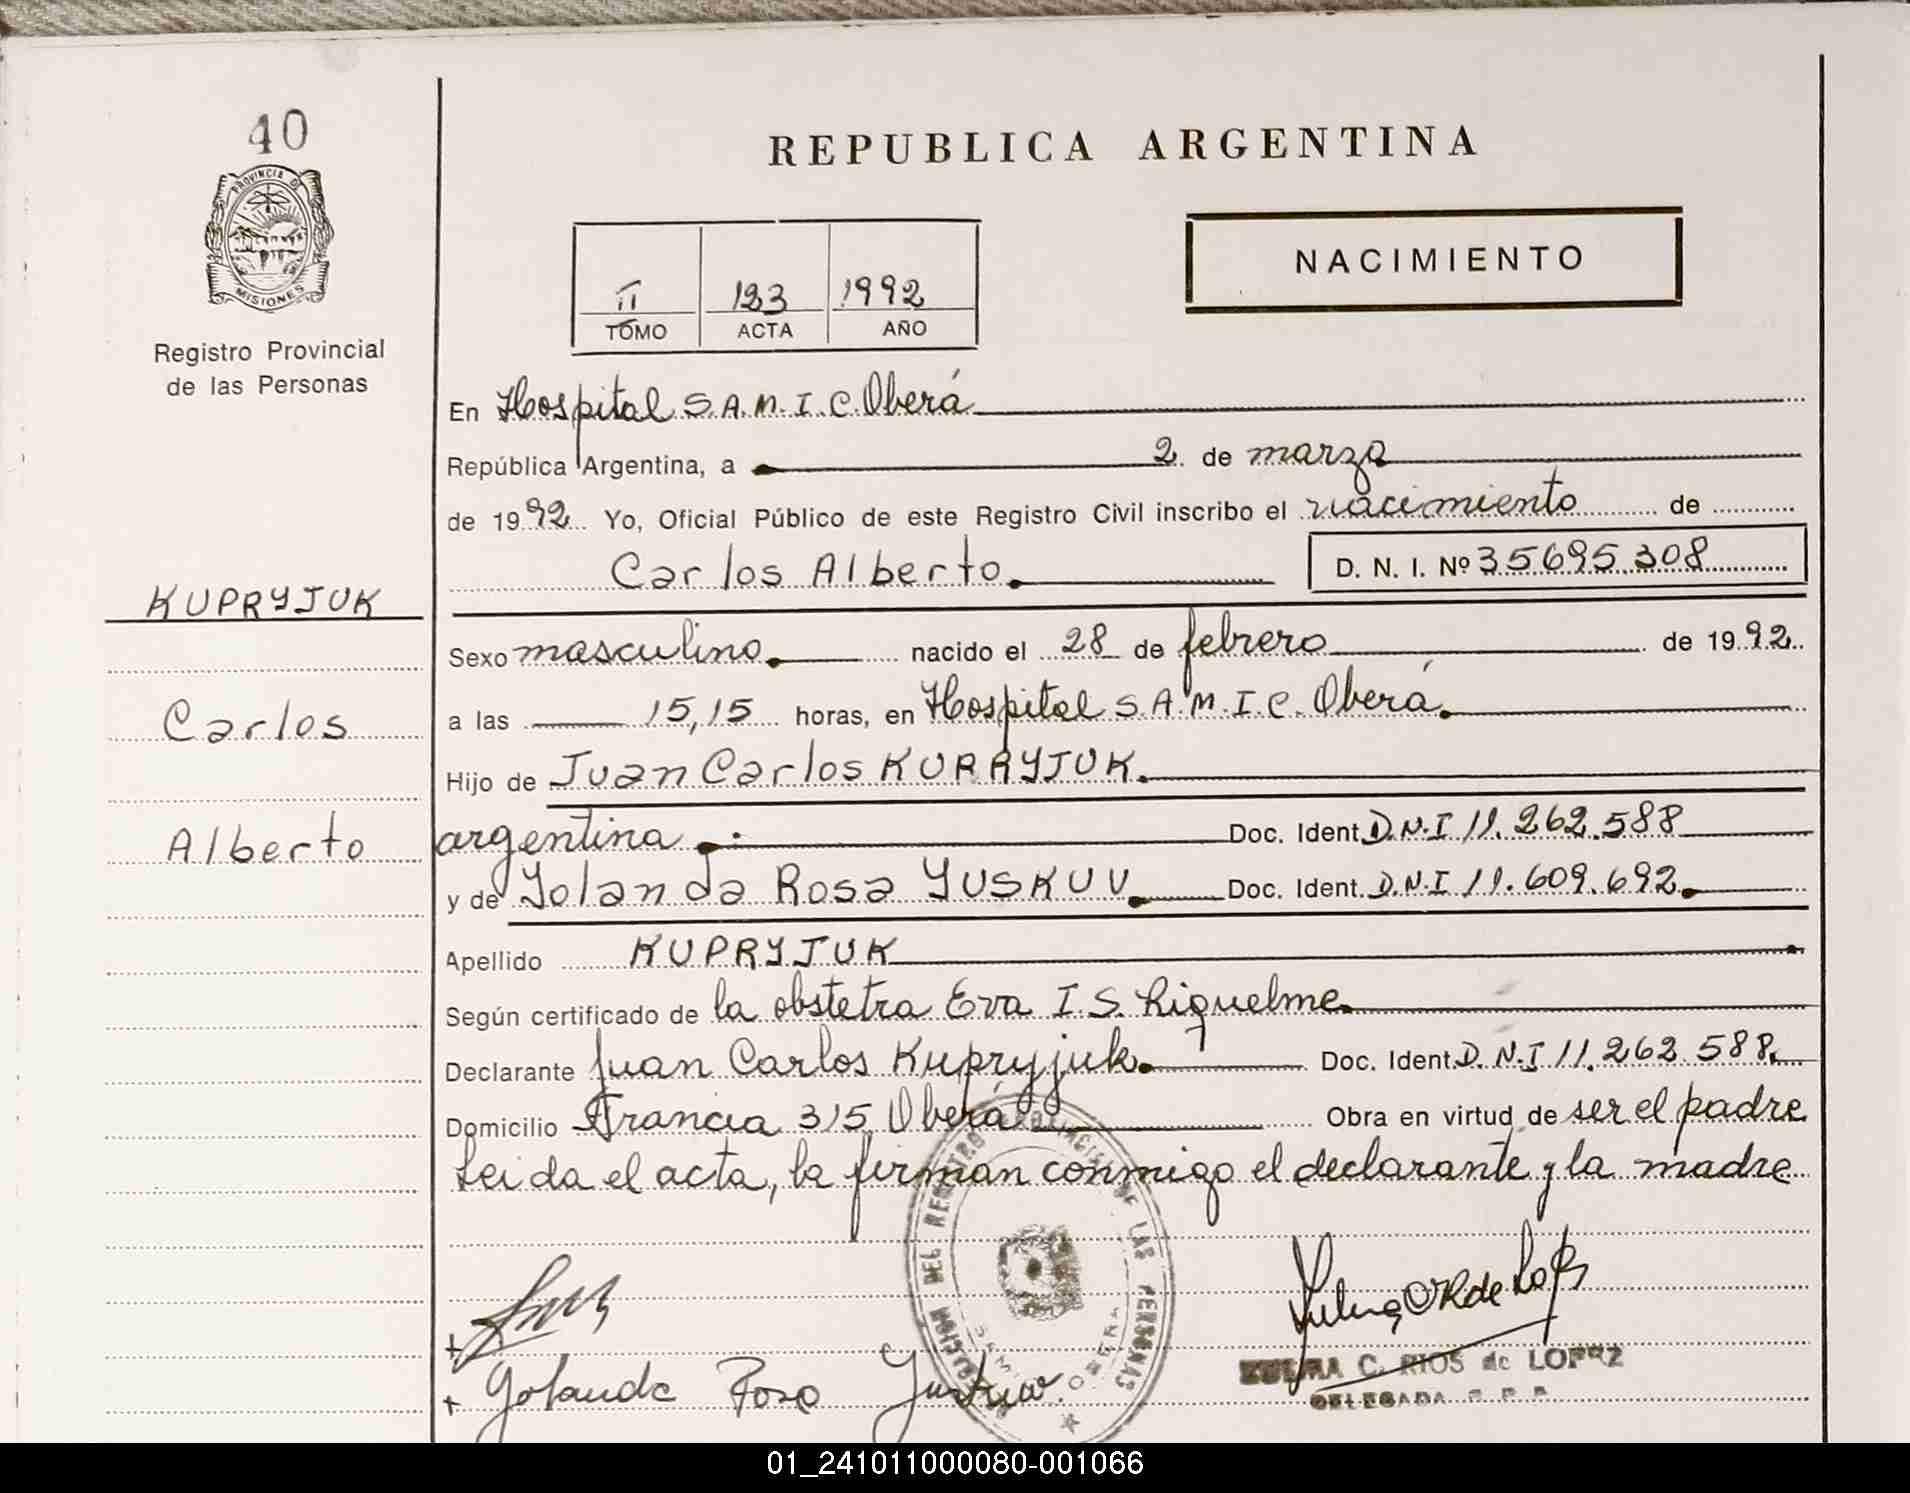 40
PROVINCIA DE
MISIONES
Registro Provincial
de las Personas
KUPRYJUK
Carlos
Alberto
REPUBLICA ARGENTINA
II 123 1992
TOMO ACTA AÑO
NACIMIENTO
En Hospital S.A.M.I.C. Oberá
República Argentina, a 2 de marzo
de 1992 Yo, Oficial Público de este Registro Civil inscribo el nacimiento de
Carlos Alberto. D. N. I. Nº 35695.308
Sexo masculino. nacido el 28 de febrero de 1992
a las 15,15 horas, en Hospital S.A.M.I.C. Oberá.
Hijo de Juan Carlos KUPRYJUK.
argentina. Doc. Ident. D.N.I 11.262.588
y de Yolanda Rosa YUSKUV. Doc. Ident. D.N.I 11.609.692.
Apellido KUPRYJUK
Según certificado de la obstetra Eva I. S. Riquelme.
Declarante Juan Carlos Kupryjuk. Doc. Ident. D.N.I 11.262.588.
Domicilio Francia 315 Oberá Obra en virtud de ser el padre
Leida el acta, la firman conmigo el declarante y la madre
DEL REGISTRO PROVINCIAL DE LAS PERSONAS
OBERA
+
+ Yolanda Rosa
ZULMA C. RIOS de LOPEZ
DELEGADA R. P. P.
01_241011000080-001066